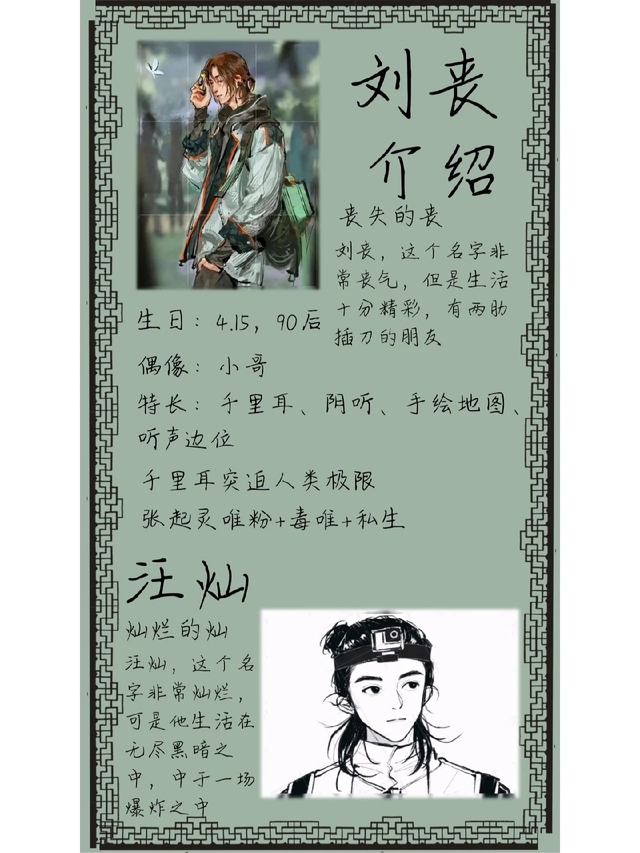 刘丧
介绍
丧失的丧
刘丧，这个名字非
常丧气，但是生活
十分精彩，有两肋
插刀的朋友
生日：4.15，90后
偶像：小哥
特长：千里耳、阴听、手绘地图、
听声边位
千里耳突迫人类极限
张起灵唯粉+毒唯+私生
汪灿
灿烂的灿
汪灿，这个名
字非常灿烂，
可是他生活在
无尽黑暗之
中，中于一场
爆炸之中